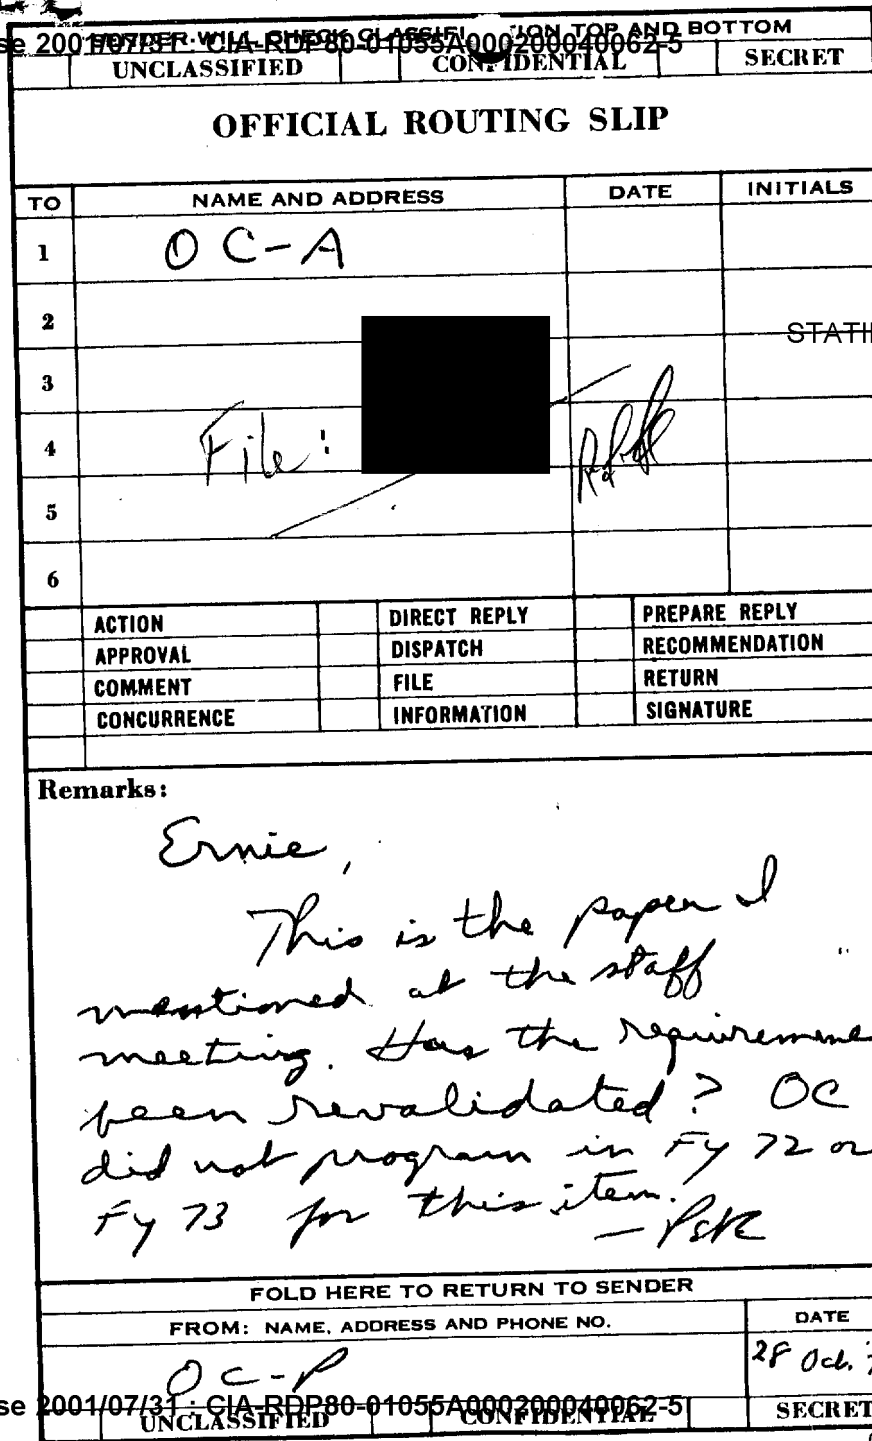 SENDER WILL CHECK CLASSIFI TION TOP AND BOTTOM
se 2001/07/31 : CIA-RDP80-01055A000200040062-5
UNCLASSIFIED CONFIDENTIAL SECRET
OFFICIAL ROUTING SLIP
TO NAME AND ADDRESS DATE INITIALS
1 OC-A
2
STATI
3
4 File:
5
6
ACTION DIRECT REPLY PREPARE REPLY
APPROVAL DISPATCH RECOMMENDATION
COMMENT FILE RETURN
CONCURRENCE INFORMATION SIGNATURE
Remarks:
Ernie,
This is the paper I
mentioned at the staff
meeting. Has the requiremen
been revalidated? OC
did not program in FY 72 or
FY 73 for this item.
FOLD HERE TO RETURN TO SENDER
FROM: NAME, ADDRESS AND PHONE NO. DATE
OC-P 28 Oct.
se 2001/07/31 : CIA-RDP80-01055A000200040062-5
UNCLASSIFIED CONFIDENTIAL SECRET